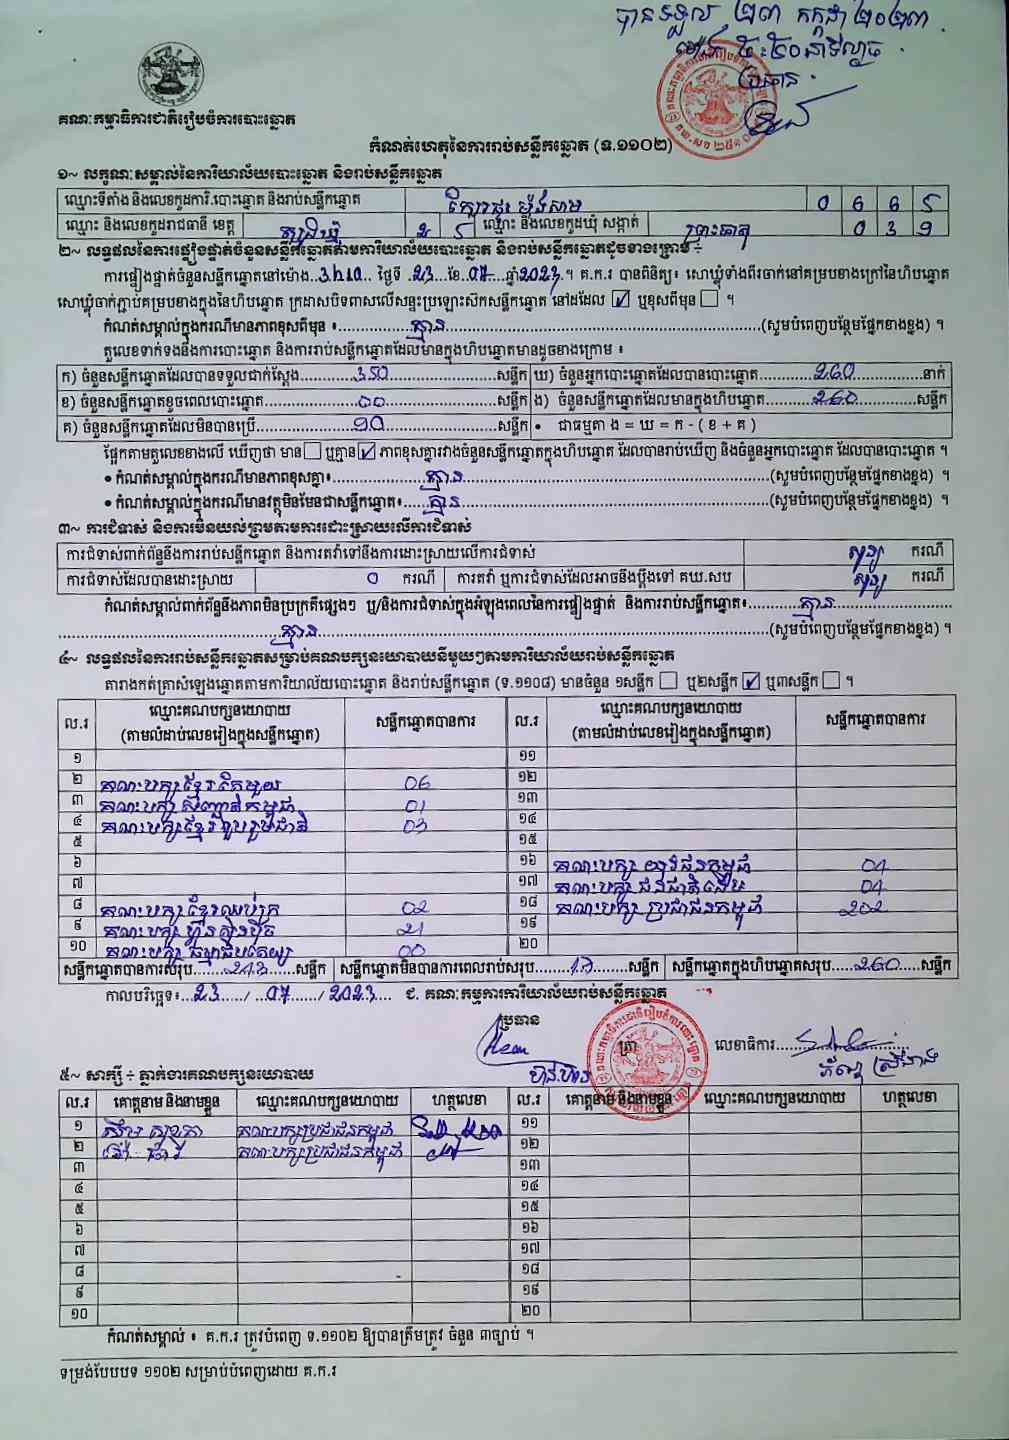 បានទទួល ២៣ កក្កដា ២០២៣
ម៉ោង ៥:៥០នាទីល្ងាច
ប្រធាន
គណៈកម្មាធិការជាតិរៀបចំការបោះឆ្នោត
កំណត់ហេតុនៃការរាប់សន្លឹកឆ្នោត (ទ.១១០២)
១~ លក្ខណៈសម្គាល់នៃការិយាល័យបោះឆ្នោត និងរាប់សន្លឹកឆ្នោត
ឈ្មោះទីតាំង និងលេខកូដការិ.បោះឆ្នោត និងរាប់សន្លឹកឆ្នោត 0 6 6 5
ឈ្មោះ និងលេខកូដរាជធានី ខេត្ត ត្បូងឃ្មុំ 2 5 ឈ្មោះ និងលេខកូដឃុំ សង្កាត់ 0 3 9
២~ លទ្ធផលនៃការផ្ទៀងផ្ទាត់ចំនួនសន្លឹកឆ្នោតតាមការិយាល័យបោះឆ្នោត និងរាប់សន្លឹកឆ្នោតដូចខាងក្រោម ÷
ការផ្ទៀងផ្ទាត់ចំនួនសន្លឹកឆ្នោតនៅម៉ោង 3h10 ថ្ងៃទី 23 ខែ 07 ឆ្នាំ 2023 ។ គ.ក.រ បានពិនិត្យ៖ សោឃ្លុំទាំងពីរចាក់នៅគម្របខាងក្រៅនៃហិបឆ្នោត
សោឃ្លុំចាក់ភ្ជាប់គម្របខាងក្នុងនៃហិបឆ្នោត ក្រដាសបិទពាសលើសន្ទះប្រឡោះសឹកសន្លឹកឆ្នោត នៅដដែល ☑ ឬខុសពីមុន ☐ ។
កំណត់សម្គាល់ក្នុងករណីមានភាពខុសពីមុន ៖ គ្មាន (សូមបំពេញបន្ថែមផ្នែកខាងខ្នង) ។
តួលេខទាក់ទងនឹងការបោះឆ្នោត និងការរាប់សន្លឹកឆ្នោតដែលមានក្នុងហិបឆ្នោតមានដូចខាងក្រោម ៖
ក) ចំនួនសន្លឹកឆ្នោតដែលបានទទួលជាក់ស្តែង 350 សន្លឹក ឃ) ចំនួនអ្នកបោះឆ្នោតដែលបានបោះឆ្នោត 260 នាក់
ខ) ចំនួនសន្លឹកឆ្នោតខូចពេលបោះឆ្នោត 00 សន្លឹក ង) ចំនួនសន្លឹកឆ្នោតដែលមានក្នុងហិបឆ្នោត 260 សន្លឹក
គ) ចំនួនសន្លឹកឆ្នោតដែលមិនបានប្រើ 90 សន្លឹក • ជាធម្មតា ង = ឃ = ក - ( ខ + គ )
ផ្អែកតាមតួលេខខាងលើ ឃើញថា មាន ☐ ឬគ្មាន ☑ ភាពខុសគ្នារវាងចំនួនសន្លឹកឆ្នោតក្នុងហិបឆ្នោត ដែលបានរាប់ឃើញ និងចំនួនអ្នកបោះឆ្នោត ដែលបានបោះឆ្នោត ។
• កំណត់សម្គាល់ក្នុងករណីមានភាពខុសគ្នា៖ គ្មាន (សូមបំពេញបន្ថែមផ្នែកខាងខ្នង) ។
• កំណត់សម្គាល់ក្នុងករណីមានវត្ថុមិនមែនជាសន្លឹកឆ្នោត៖ គ្មាន (សូមបំពេញបន្ថែមផ្នែកខាងខ្នង) ។
៣~ ការជំទាស់ និងការមិនយល់ព្រមតាមការដោះស្រាយលើការជំទាស់
ការជំទាស់ពាក់ព័ន្ធនឹងការរាប់សន្លឹកឆ្នោត និងការតវ៉ាទៅនឹងការដោះស្រាយលើការជំទាស់ សូន្យ ករណី
ការជំទាស់ដែលបានដោះស្រាយ 0 ករណី ការតវ៉ា ឬការជំទាស់ដែលអាចនឹងប្តឹងទៅ គឃ.សប សូន្យ ករណី
កំណត់សម្គាល់ពាក់ព័ន្ធនឹងភាពមិនប្រក្រតីផ្សេងៗ ឬ/និងការជំទាស់ក្នុងអំឡុងពេលនៃការផ្ទៀងផ្ទាត់ និងការរាប់សន្លឹកឆ្នោត៖ គ្មាន
គ្មាន (សូមបំពេញបន្ថែមផ្នែកខាងខ្នង) ។
៤~ លទ្ធផលនៃការរាប់សន្លឹកឆ្នោតសម្រាប់គណបក្សនយោបាយនីមួយៗតាមការិយាល័យរាប់សន្លឹកឆ្នោត
តារាងកត់ត្រាសំឡេងឆ្នោតតាមការិយាល័យបោះឆ្នោត និងរាប់សន្លឹកឆ្នោត (ទ.១១០៨) មានចំនួន ១សន្លឹក ☐ ឬ២សន្លឹក ☑ ឬ៣សន្លឹក ☐ ។
ល.រ ឈ្មោះគណបក្សនយោបាយ (តាមលំដាប់លេខរៀងក្នុងសន្លឹកឆ្នោត) សន្លឹកឆ្នោតបានការ ល.រ ឈ្មោះគណបក្សនយោបាយ (តាមលំដាប់លេខរៀងក្នុងសន្លឹកឆ្នោត) សន្លឹកឆ្នោតបានការ
១ ១១
២ គណបក្សខ្មែរតែមួយ 06 ១២
៣ គណបក្ស សញ្ជាតិកម្ពុជា 01 ១៣
៤ គណបក្សខ្មែររួបរួមជាតិ 03 ១៤
៥ ១៥
៦ ១៦ គណបក្ស យុវជនកម្ពុជា 01
៧ ១៧ គណបក្ស ជនជាតិដើម 01
៨ គណបក្ស ខ្មែរឈប់ក្រ 02 ១៨ គណបក្ស ប្រជាជនកម្ពុជា 202
៩ គណបក្ស ហ្វ៊ុនស៊ិនប៉ិច 21 ១៩
១០ គណបក្ស ធម្មាធិបតេយ្យ 00 ២០
សន្លឹកឆ្នោតបានការសរុប 243 សន្លឹក សន្លឹកឆ្នោតមិនបានការពេលរាប់សរុប 17 សន្លឹក សន្លឹកឆ្នោតក្នុងហិបឆ្នោតសរុប 260 សន្លឹក
កាលបរិច្ឆេទ៖ 23 / 07 / 2023 ជ. គណៈកម្មការការិយាល័យរាប់សន្លឹកឆ្នោត
ប្រធាន
ត្រា លេខាធិការ
៥~ សាក្សី ÷ ភ្នាក់ងារគណបក្សនយោបាយ
ល.រ គោត្តនាម និងនាមខ្លួន ឈ្មោះគណបក្សនយោបាយ ហត្ថលេខា ល.រ គោត្តនាម និងនាមខ្លួន ឈ្មោះគណបក្សនយោបាយ ហត្ថលេខា
១ គណបក្សប្រជាជនកម្ពុជា ១១
២ គណបក្សប្រជាជនកម្ពុជា ១២
៣ ១៣
៤ ១៤
៥ ១៥
៦ ១៦
៧ ១៧
៨ ១៨
៩ ១៩
១០ ២០
កំណត់សម្គាល់ ៖ គ.ក.រ ត្រូវបំពេញ ទ.១១០២ ឱ្យបានត្រឹមត្រូវ ចំនួន ៣ច្បាប់ ។
ទម្រង់បែបបទ ១១០២ សម្រាប់បំពេញដោយ គ.ក.រ